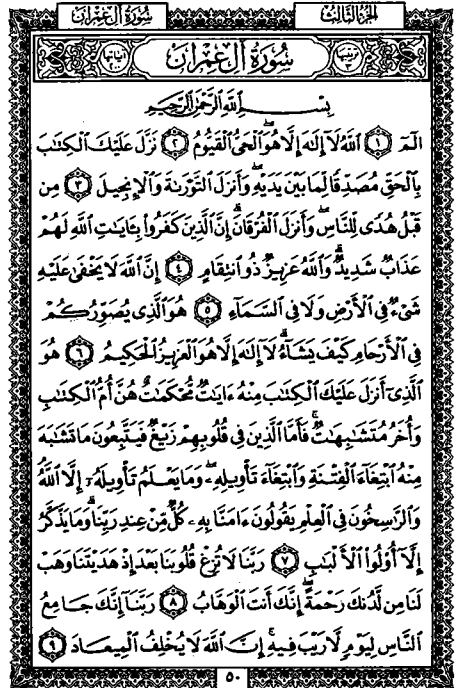 سُورَةُ آلِ عِمْرَانَ
الجزء الثالث
ترتيبها ٣
سُورَةُ آلِ عِمْرَانَ
آياتها ٢٠٠
بِسْمِ اللَّهِ الرَّحْمَٰنِ الرَّحِيمِ
الٓمٓ ١ ٱللَّهُ لَآ إِلَٰهَ إِلَّا هُوَ ٱلْحَىُّ ٱلْقَيُّومُ ٢ نَزَّلَ عَلَيْكَ ٱلْكِتَٰبَ
بِٱلْحَقِّ مُصَدِّقًا لِّمَا بَيْنَ يَدَيْهِ وَأَنزَلَ ٱلتَّوْرَىٰةَ وَٱلْإِنجِيلَ ٣ مِن
قَبْلُ هُدًى لِّلنَّاسِ وَأَنزَلَ ٱلْفُرْقَانَ ۗ إِنَّ ٱلَّذِينَ كَفَرُوا۟ بِـَٔايَٰتِ ٱللَّهِ لَهُمْ
عَذَابٌ شَدِيدٌ ۗ وَٱللَّهُ عَزِيزٌ ذُو ٱنتِقَامٍ ٤ إِنَّ ٱللَّهَ لَا يَخْفَىٰ عَلَيْهِ
شَىْءٌ فِى ٱلْأَرْضِ وَلَا فِى ٱلسَّمَآءِ ٥ هُوَ ٱلَّذِى يُصَوِّرُكُمْ
فِى ٱلْأَرْحَامِ كَيْفَ يَشَآءُ ۚ لَآ إِلَٰهَ إِلَّا هُوَ ٱلْعَزِيزُ ٱلْحَكِيمُ ٦ هُوَ
ٱلَّذِىٓ أَنزَلَ عَلَيْكَ ٱلْكِتَٰبَ مِنْهُ ءَايَٰتٌ مُّحْكَمَٰتٌ هُنَّ أُمُّ ٱلْكِتَٰبِ
وَأُخَرُ مُتَشَٰبِهَٰتٌ ۖ فَأَمَّا ٱلَّذِينَ فِى قُلُوبِهِمْ زَيْغٌ فَيَتَّبِعُونَ مَا تَشَٰبَهَ
مِنْهُ ٱبْتِغَآءَ ٱلْفِتْنَةِ وَٱبْتِغَآءَ تَأْوِيلِهِۦ ۗ وَمَا يَعْلَمُ تَأْوِيلَهُۥٓ إِلَّا ٱللَّهُ ۗ
وَٱلرَّٰسِخُونَ فِى ٱلْعِلْمِ يَقُولُونَ ءَامَنَّا بِهِۦ كُلٌّ مِّنْ عِندِ رَبِّنَا ۗ وَمَا يَذَّكَّرُ
إِلَّآ أُو۟لُوا۟ ٱلْأَلْبَٰبِ ٧ رَبَّنَا لَا تُزِغْ قُلُوبَنَا بَعْدَ إِذْ هَدَيْتَنَا وَهَبْ
لَنَا مِن لَّدُنكَ رَحْمَةً ۚ إِنَّكَ أَنتَ ٱلْوَهَّابُ ٨ رَبَّنَآ إِنَّكَ جَامِعُ
ٱلنَّاسِ لِيَوْمٍ لَّا رَيْبَ فِيهِ ۚ إِنَّ ٱللَّهَ لَا يُخْلِفُ ٱلْمِيعَادَ ٩
٥٠